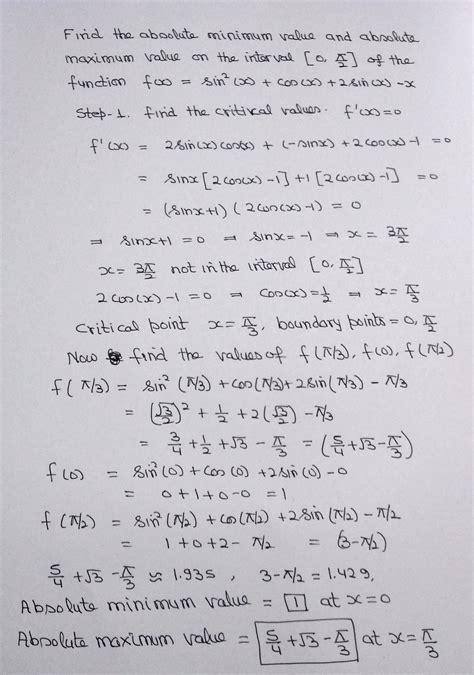 Find the absolute minimum value and absolute
maximum value on the interval [0, π/2] of the
function f(x) = sin²(x) + cos(x) + 2 sin(x) - x
Step-1. find the critical values. f'(x)=0
f'(x) = 2 sin(x) cos(x) + (-sinx) + 2cos(x)-1 = 0
= sinx [2cos(x) -1] +1 [2 cos(x) -1] = 0
= (sinx+1) (2cos(x)-1) = 0
⇒ sinx+1 = 0 ⇒ sinx = -1 ⇒ x = 3π/2
x = 3π/2 not in the interval [0, π/2]
2 cos(x) -1 = 0 ⇒ cos(x) = 1/2 ⇒ x = π/3
Critical point x = π/3, boundary points = 0, π/2
Now find the values of f(π/3), f(0), f(π/2)
f(π/3) = sin²(π/3) + cos(π/3) + 2 sin(π/3) - π/3
= (√3/2)² + 1/2 + 2(√3/2) - π/3
= 3/4 + 1/2 + √3 - π/3 = (5/4 + √3 - π/3)
f(0) = sin²(0) + cos(0) + 2 sin(0) - 0
= 0+1+0-0 = 1
f(π/2) = sin²(π/2) + cos(π/2) + 2 sin(π/2) - π/2
= 1+0+2- π/2 = (3-π/2)
5/4 + √3 - π/3 ≈ 1.935, 3-π/2 = 1.429,
Absolute minimum value = 1 at x=0
Absolute maximum value = 5/4 + √3 - π/3 at x = π/3